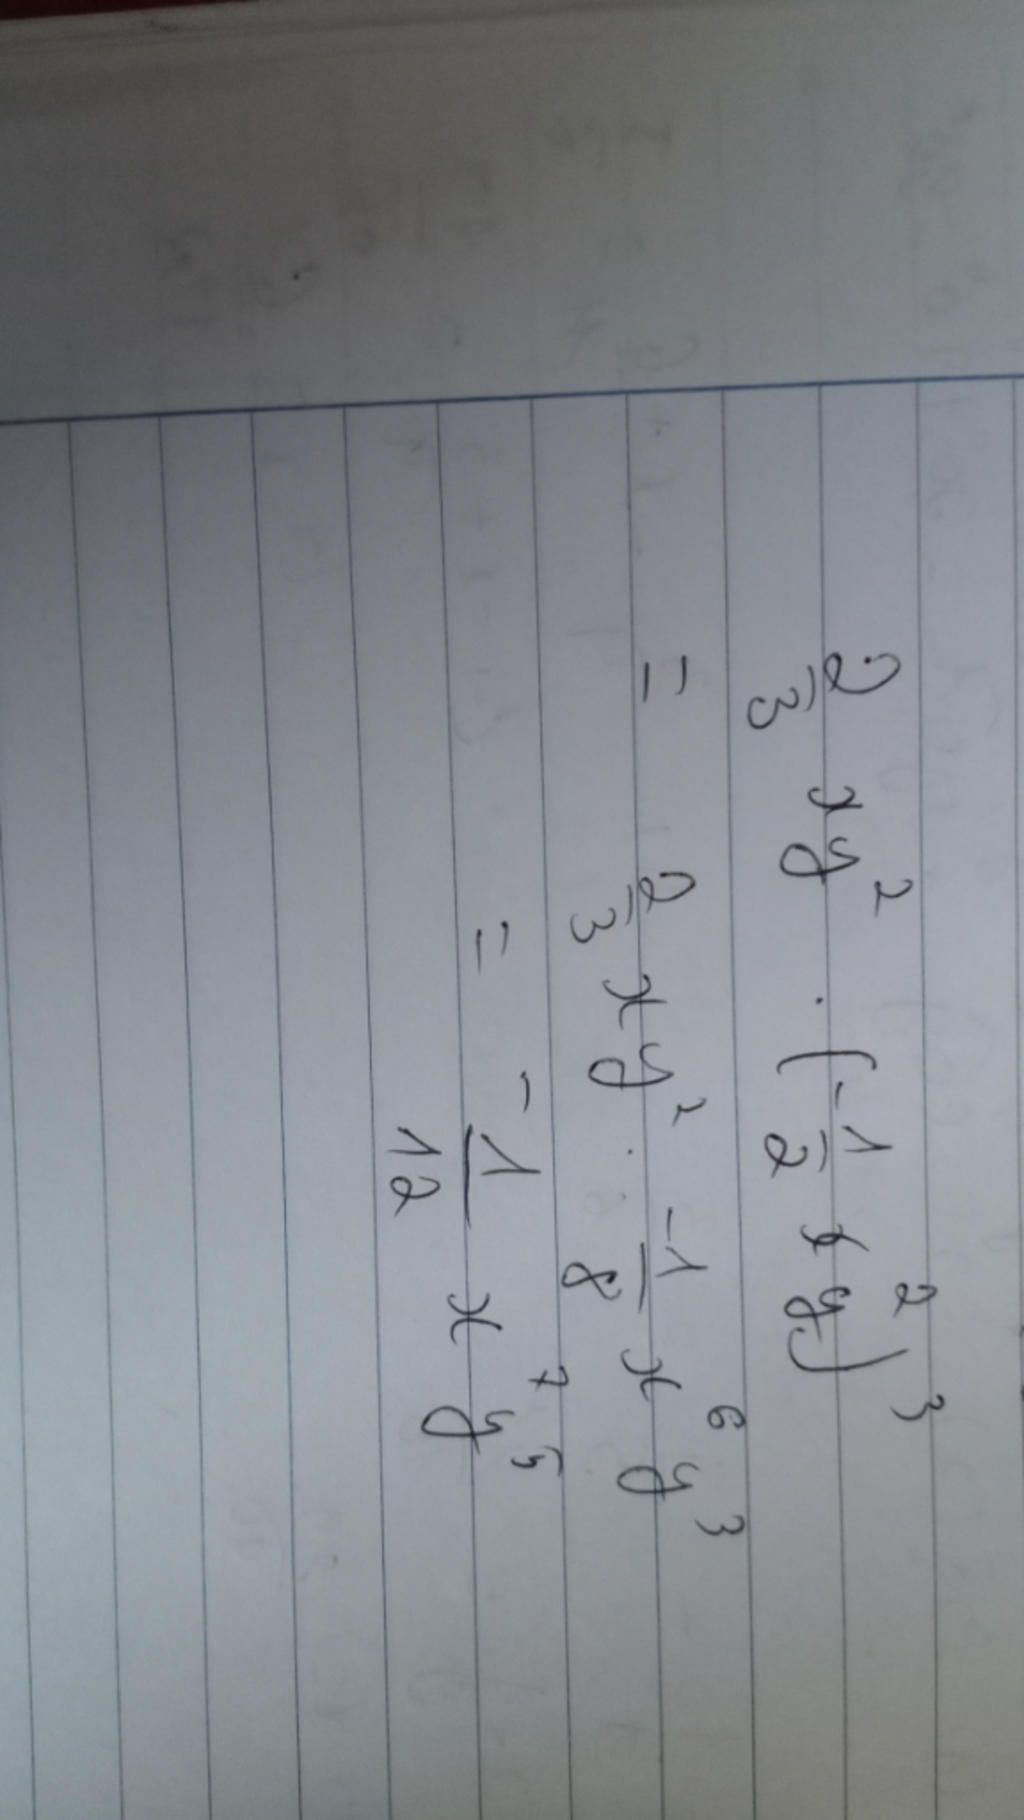 2/3 xy² · (-1/2 x²y)³
= 2/3 xy² · -1/8 x⁶y³
= -1/12 x⁷y⁵